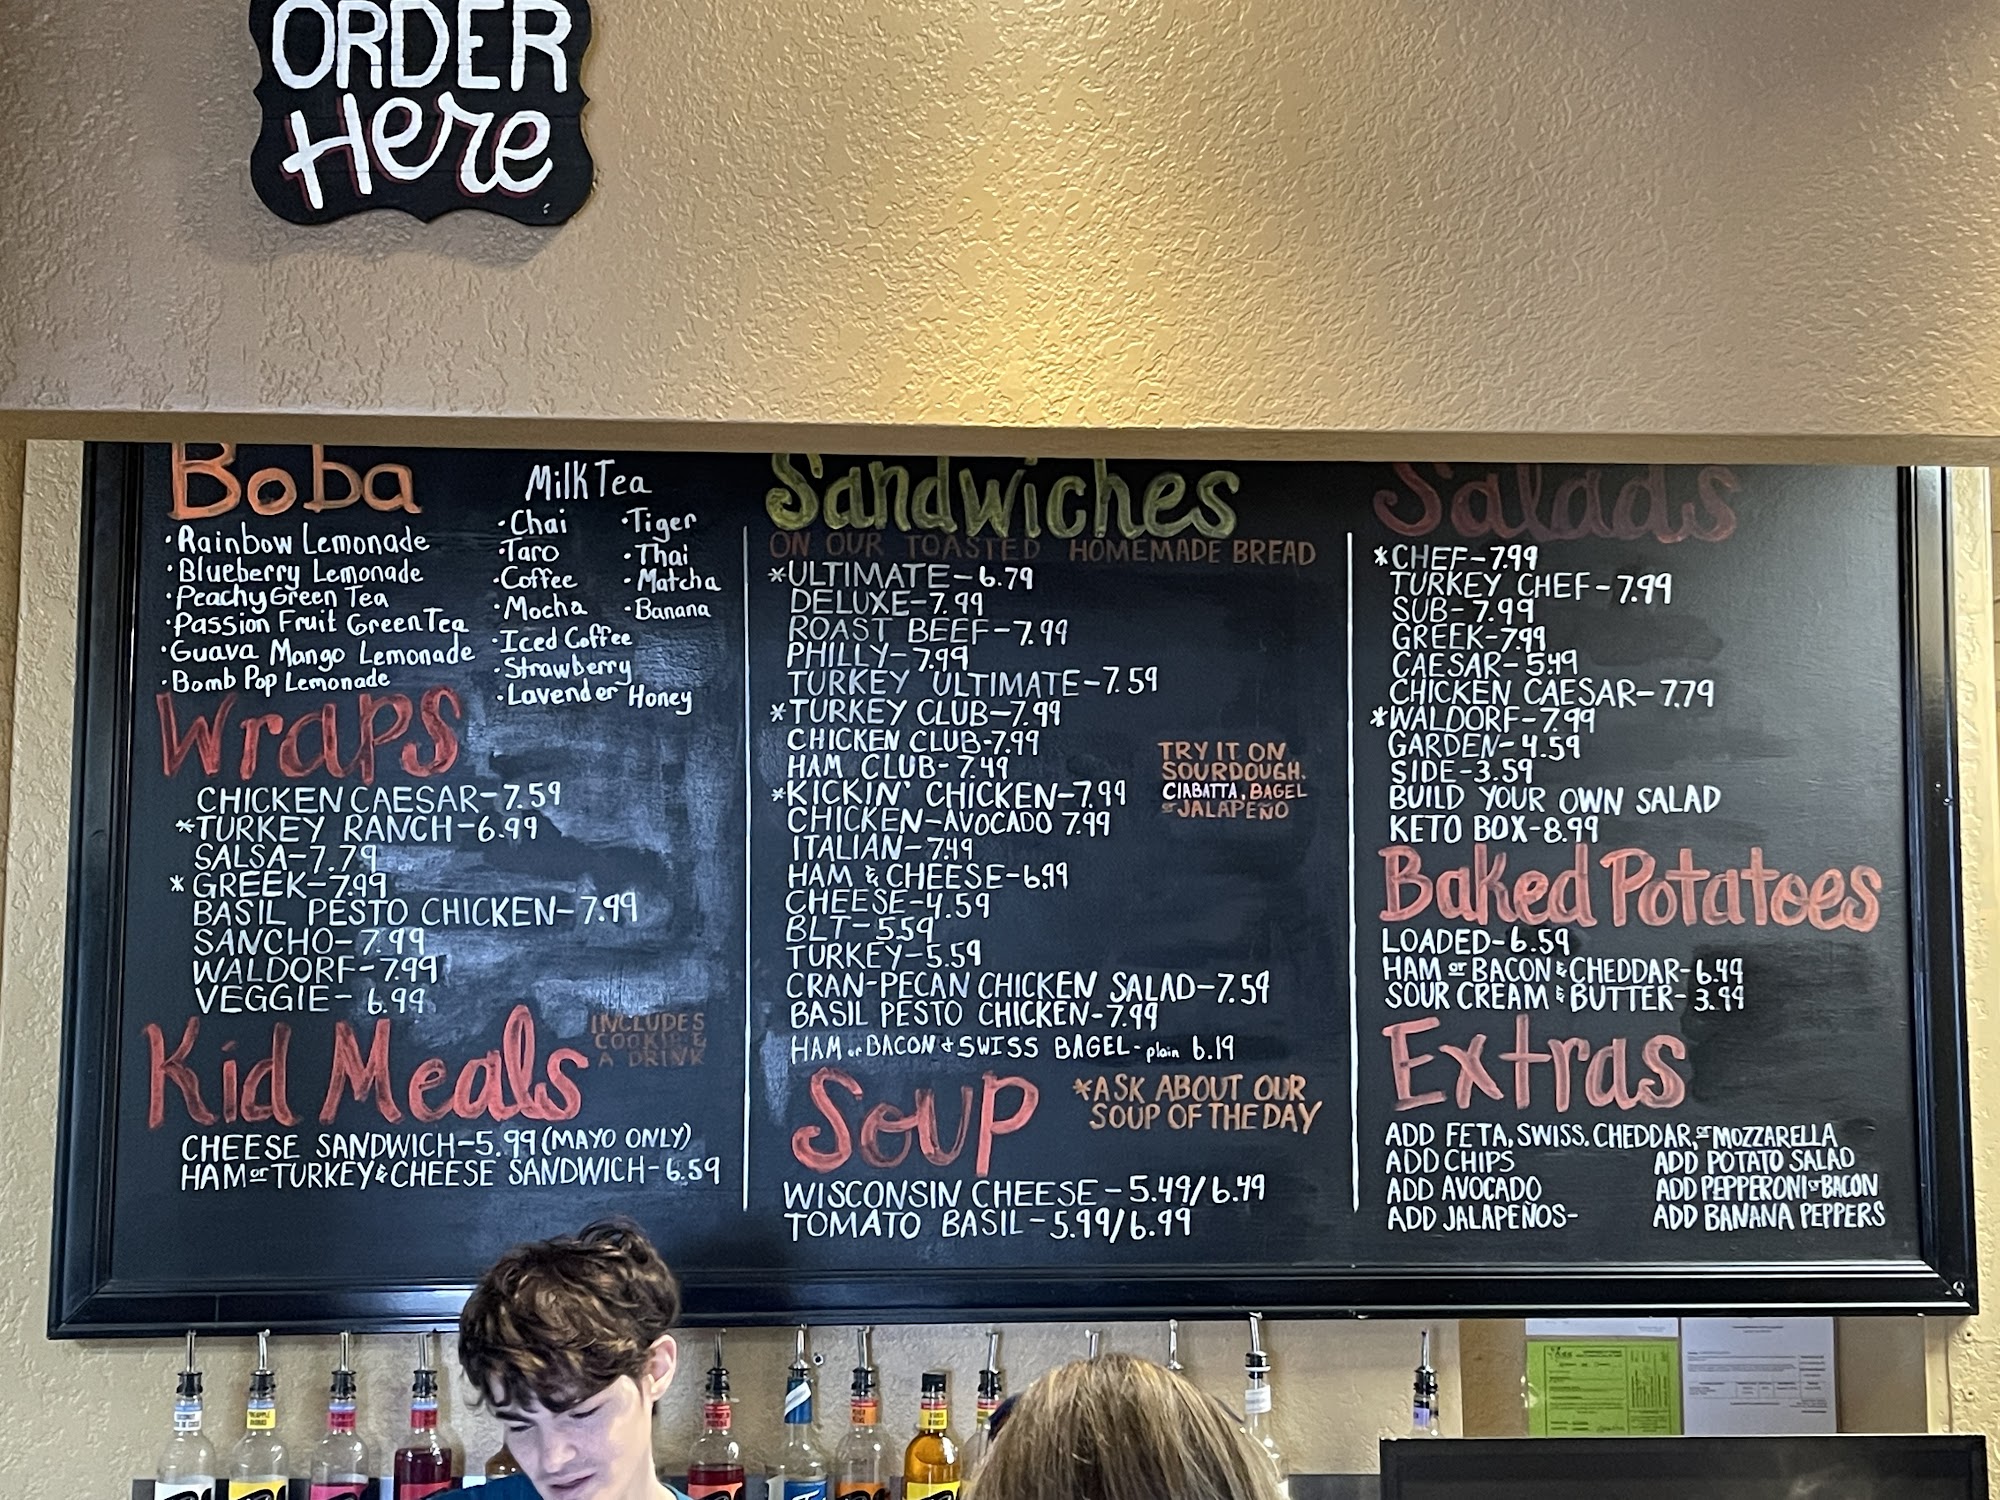 ORDER
Here
Boba
· Rainbow Lemonade
· Blueberry Lemonade
· Peachy Green Tea
· Passion Fruit Green Tea
· Guava Mango Lemonade
· Bomb Pop Lemonade
Milk Tea
· Chai
· Taro
· Coffee
· Mocha
· Iced Coffee
· Strawberry
· Lavender Honey
· Tiger
· Thai
· Matcha
· Banana
Wraps
CHICKEN CAESAR-7.59
*TURKEY RANCH-6.99
SALSA-7.79
*GREEK-7.99
BASIL PESTO CHICKEN-7.99
SANCHO-7.99
WALDORF-7.99
VEGGIE-6.99
Kid Meals
INCLUDES
COOKIE &
A DRINK
CHEESE SANDWICH-5.99 (MAYO ONLY)
HAM or TURKEY & CHEESE SANDWICH-6.59
Sandwiches
ON OUR TOASTED HOMEMADE BREAD
*ULTIMATE-6.79
DELUXE-7.99
ROAST BEEF-7.99
PHILLY-7.99
TURKEY ULTIMATE-7.59
*TURKEY CLUB-7.99
CHICKEN CLUB-7.99
HAM CLUB-7.49
*KICKIN' CHICKEN-7.99
CHICKEN-AVOCADO 7.99
ITALIAN-7.49
HAM & CHEESE-6.99
CHEESE-4.59
BLT-5.59
TURKEY-5.59
CRAN-PECAN CHICKEN SALAD-7.59
BASIL PESTO CHICKEN-7.99
HAM or BACON + SWISS BAGEL-plain 6.19
TRY IT ON
SOURDOUGH,
CIABATTA, BAGEL
or JALAPEÑO
Soup
*ASK ABOUT OUR
SOUP OF THE DAY
WISCONSIN CHEESE-5.49/6.49
TOMATO BASIL-5.99/6.99
Salads
*CHEF-7.99
TURKEY CHEF-7.99
SUB-7.99
GREEK-7.99
CAESAR-5.49
CHICKEN CAESAR-7.79
*WALDORF-7.99
GARDEN-4.59
SIDE-3.59
BUILD YOUR OWN SALAD
KETO BOX-8.99
Baked Potatoes
LOADED-6.59
HAM or BACON & CHEDDAR-6.49
SOUR CREAM & BUTTER-3.99
Extras
ADD FETA, SWISS, CHEDDAR, or MOZZARELLA
ADD CHIPS
ADD AVOCADO
ADD JALAPEÑOS-
ADD POTATO SALAD
ADD PEPPERONI or BACON
ADD BANANA PEPPERS